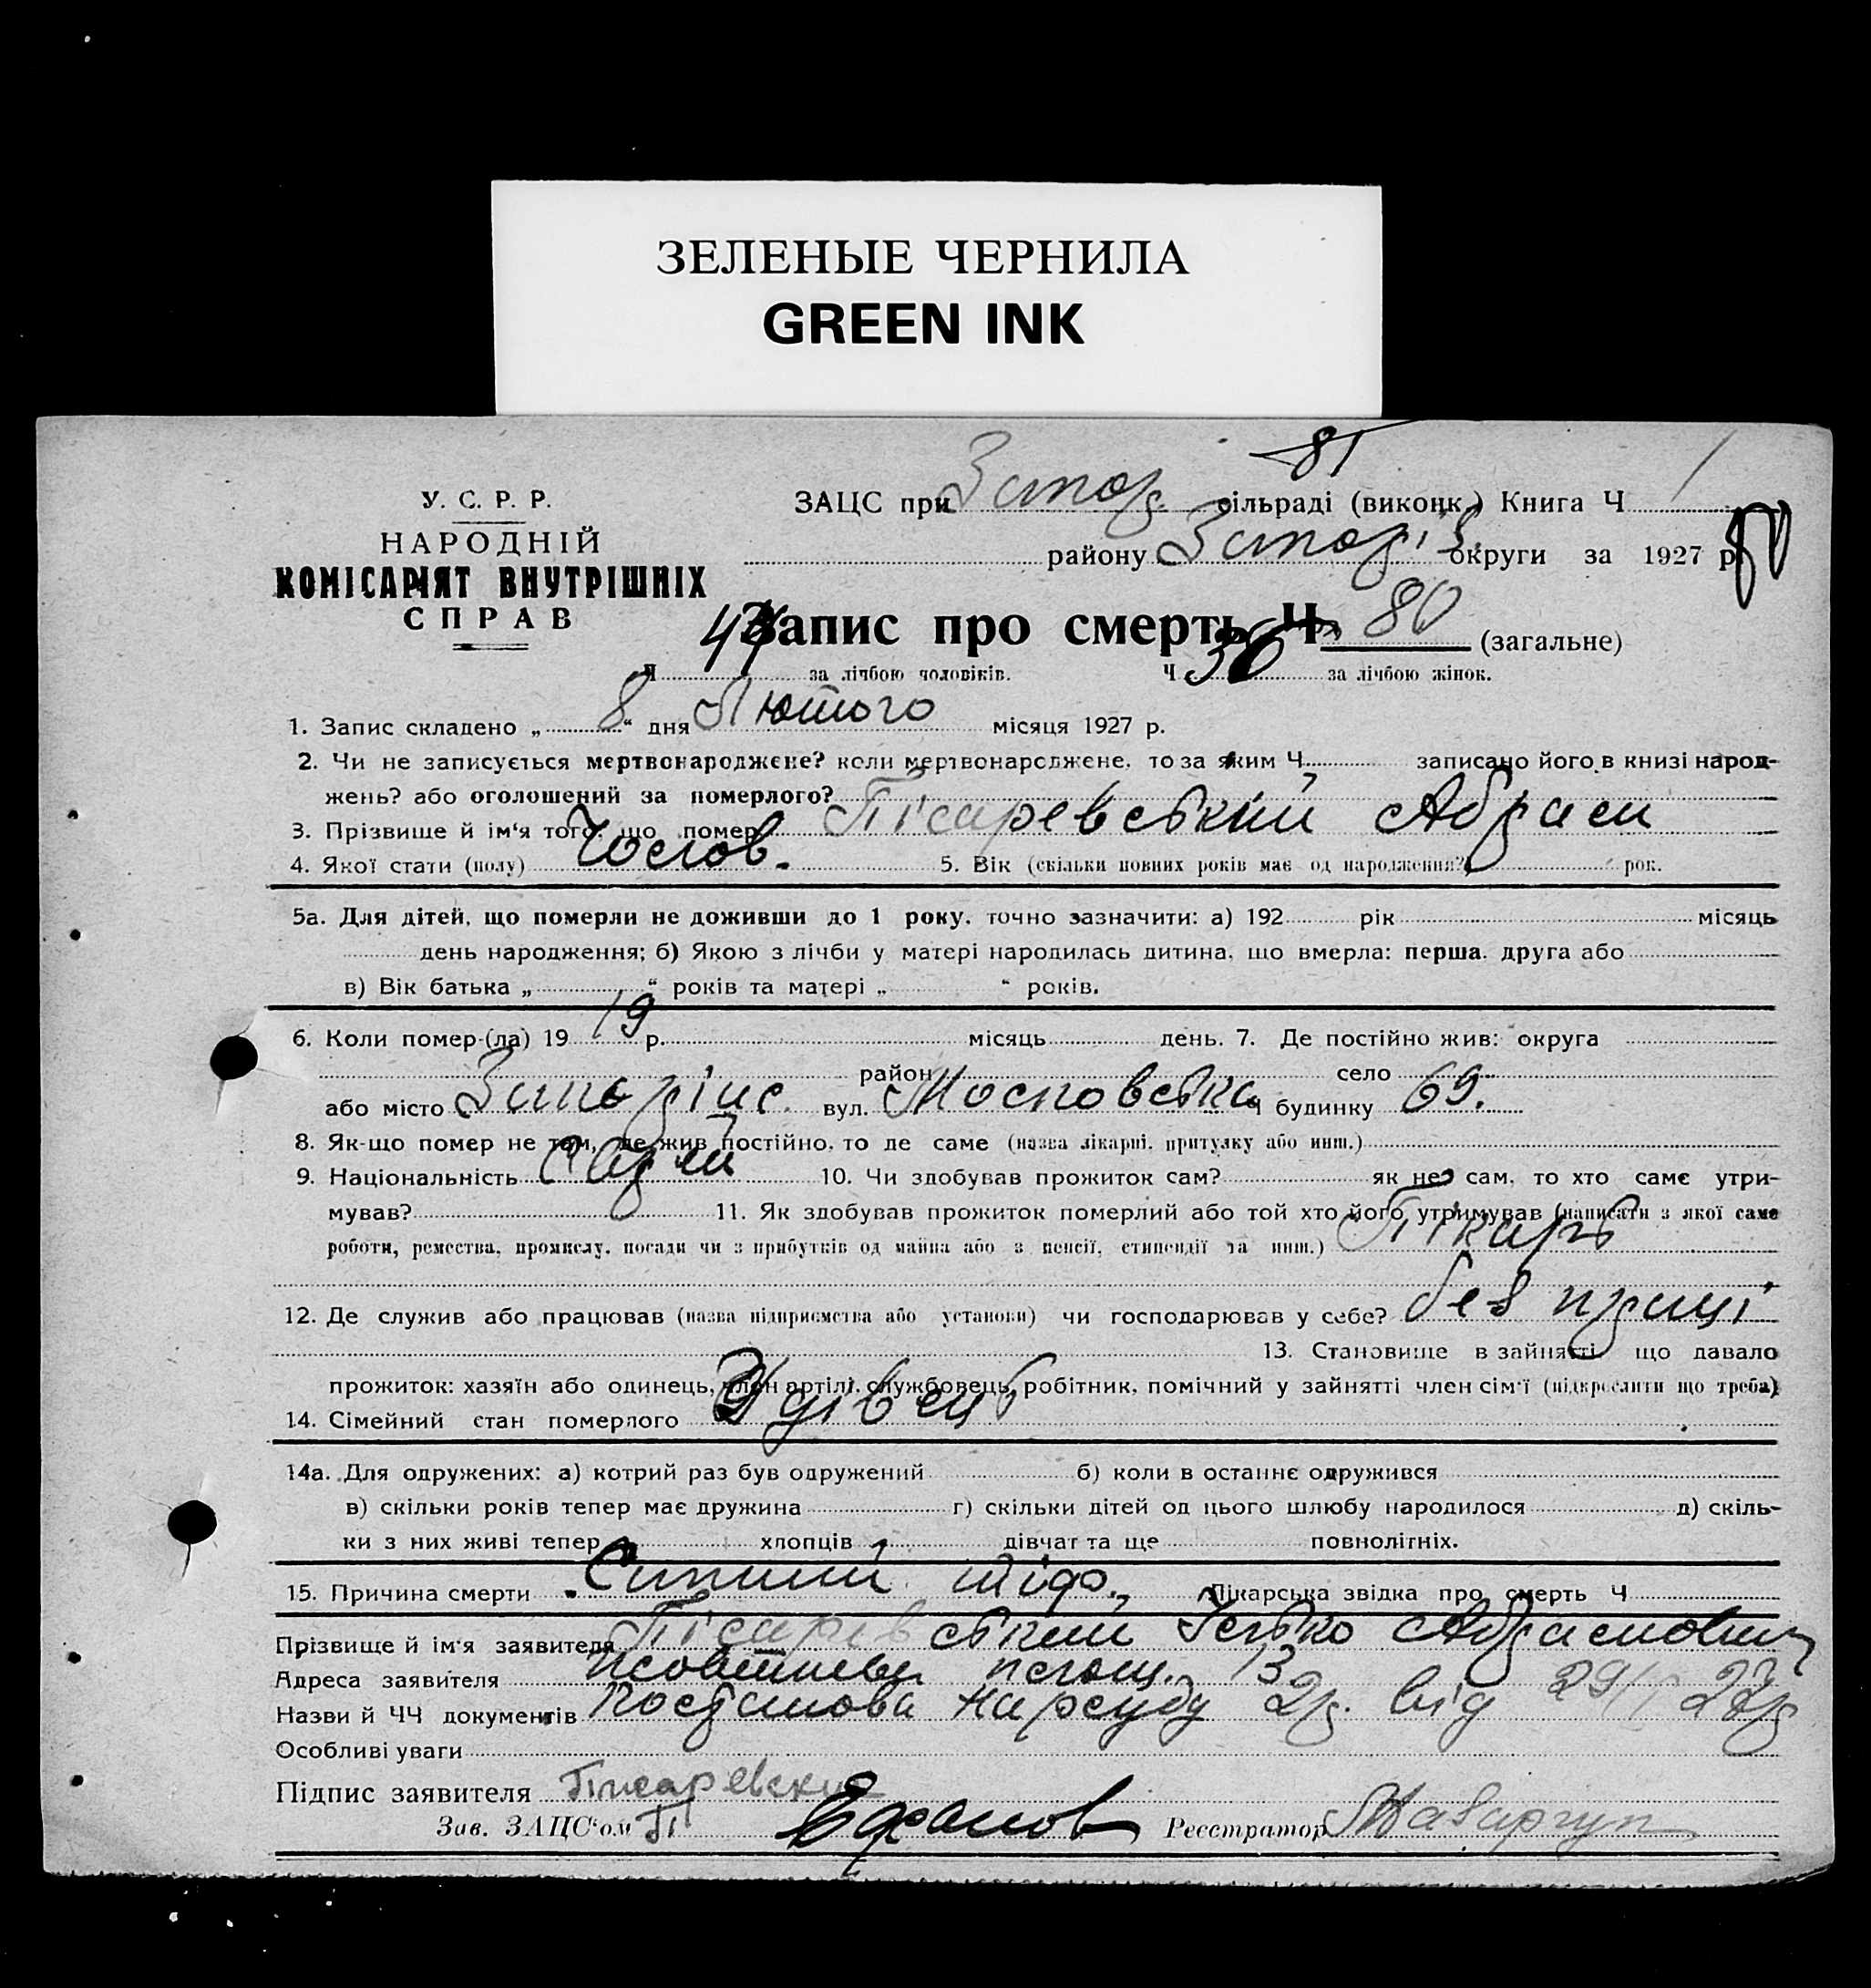 ЗЕЛЕНЫЕ ЧЕРНИЛА
GREEN INK
81
У. С. Р. Р.
НАРОДНІЙ
КОМІСАРІЯТ ВНУТРІШНІХ
СПРАВ
ЗАЦС при Запор. сільраді (виконк.) Книга Ч 1
району Запоріз. округи за 1927 р. 80
Запис про смерть Ч 80 (загальне)
Ч 44 за лічбою чоловіків. Ч 36 за лічбою жінок.
1. Запис складено „ 8 “ дня Лютого місяця 1927 р.
2. Чи не записується мертвонароджене? коли мертвонароджене, то за яким Ч записано його в книзі народ-
жень? або оголошений за померлого?
3. Прізвище й ім‘я того, що помер Пісаревський Абрам
4. Якої стати (полу) Чолов. 5. Вік (скільки повних років має од народження?) рок.
5а. Для дітей, що померли не доживши до 1 року, точно зазначити: а) 192 рік місяць
день народження; б) Якою з лічби у матері народилась дитина, що вмерла: перша, друга або
в) Вік батька „ “ років та матері „ “ років.
6. Коли помер-(ла) 1919 р. місяць день. 7. Де постійно жив: округа
район село
або місто Запоріже вул. Московська Ч будинку 69.
8. Як-що помер не там, де жив постійно, то де саме (назва лікарні, притулку або инш.)
9. Національність 10. Чи здобував прожиток сам? як не сам, то хто саме утри-
мував? 11. Як здобував прожиток померлий або той хто його утримував (написати з якої саме
роботи, ремества, промислу, посади чи з прибутків од майна або з пенсії, стипендії та инш.) Пікарь
12. Де служив або працював (назва підприємства або установи) чи господарював у себе? без праці
13. Становище в зайнятті що давало
прожиток: хазяїн або одинець, член артілі, службовець, робітник, помічний у зайнятті член сім‘ї (підкреслити що треба)
14. Сімейний стан померлого Удівець
14а. Для одружених: а) котрий раз був одружений б) коли в останнє одружився
в) скільки років тепер має дружина г) скільки дітей од цього шлюбу народилося д) скіль-
ки з них живі тепер хлопців дівчат та ще повнолітніх.
15. Причина смерти Сипний тіф., Лікарська звідка про смерть Ч
Прізвище й ім‘я заявителя Пісаревський Абрамович
Адреса заявителя площ. 13
Назви й ЧЧ документів Постанова Нарсуду 2р. від 29/I 27р
Особливі уваги
Підпис заявителя Писаревский
Зав. ЗАЦС‘ом
Реєстратор